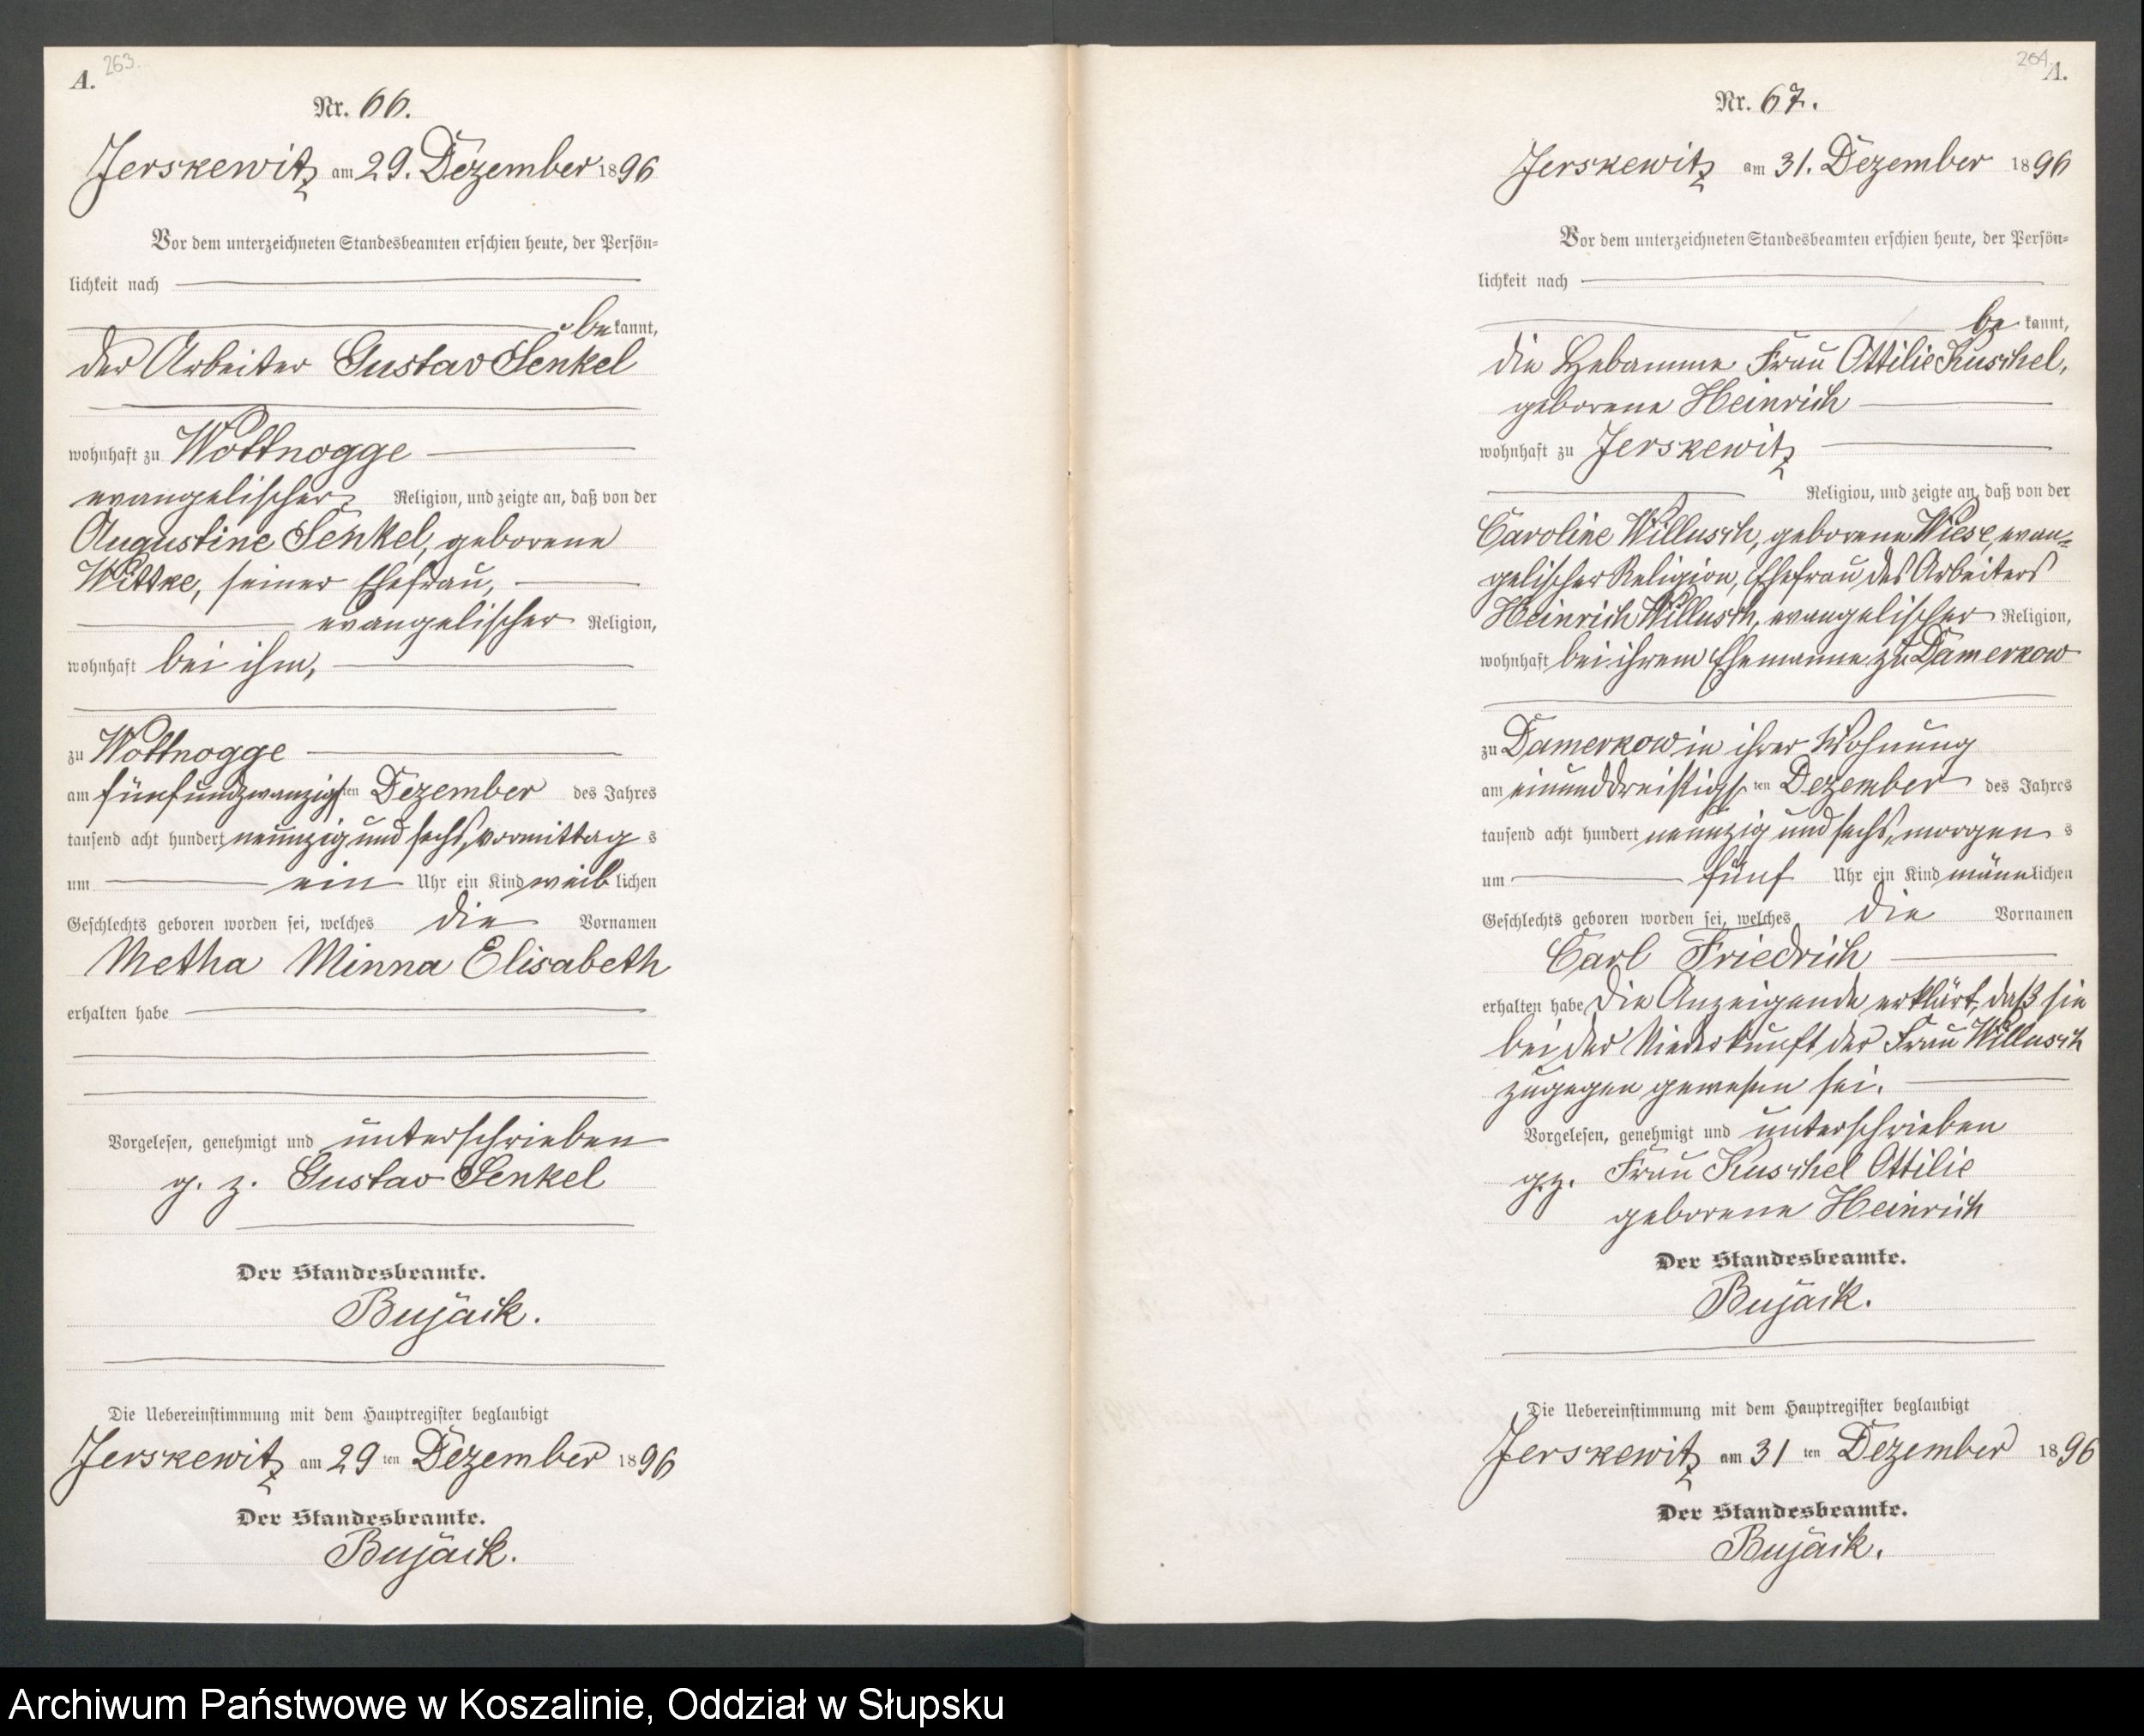 A. 263.
Nr. 66.
Jerskewitz am 29. Dezember 1896
Vor dem unterzeichneten Standesbeamten erschien heute, der Persön-
lichkeit nach
bekannt,
der Arbeiter Gustav Senkel
wohnhaft zu Wottnogge
evangelischer Religion, und zeigte an, daß von der
Augustine Senkel, geborene
Wittke, seiner Ehefrau,
evangelischer Religion,
wohnhaft bei ihm,
zu Wottnogge
am fünfundzwanzigsten Dezember des Jahres
tausend acht hundert neunzig und sechs, vormittags
um ein Uhr ein Kind weiblichen
Geschlechts geboren worden sei, welches die Vornamen
Metha Minna Elisabeth
erhalten habe
Vorgelesen, genehmigt und unterschrieben
g. z. Gustav Senkel
Der Standesbeamte.
Bujack.
Die Uebereinstimmung mit dem Hauptregister beglaubigt
Jerskewitz am 29ten Dezember 1896
Der Standesbeamte.
Bujack.
264. A.
Nr. 67.
Jerskewitz am 31. Dezember 1896
Vor dem unterzeichneten Standesbeamten erschien heute, der Persön-
lichkeit nach
bekannt,
die Hebamme Frau Ottilie Kuschel,
geborene Heinrich
wohnhaft zu Jerskewitz
Religion, und zeigte an, daß von der
Caroline Willusch, geborene Wiese, evan-
gelischer Religion, Ehefrau des Arbeiters
Heinrich Willusch, evangelischer Religion,
wohnhaft bei ihrem Ehemanne zu Damerkow
zu Damerkow in ihrer Wohnung
am einunddreißigsten Dezember des Jahres
tausend acht hundert neunzig und sechs, morgens
um fünf Uhr ein Kind männlichen
Geschlechts geboren worden sei, welches die Vornamen
Carl Friedrich
erhalten habe Die Anzeigende erklärt, daß sie
bei der Niederkunft der Frau Willusch
zugegen gewesen sei.
Vorgelesen, genehmigt und unterschrieben
g. z. Frau Kuschel Ottilie
geborene Heinrich
Der Standesbeamte.
Bujack.
Die Uebereinstimmung mit dem Hauptregister beglaubigt
Jerskewitz am 31ten Dezember 1896
Der Standesbeamte.
Bujack.
Archiwum Państwowe w Koszalinie, Oddział w Słupsku